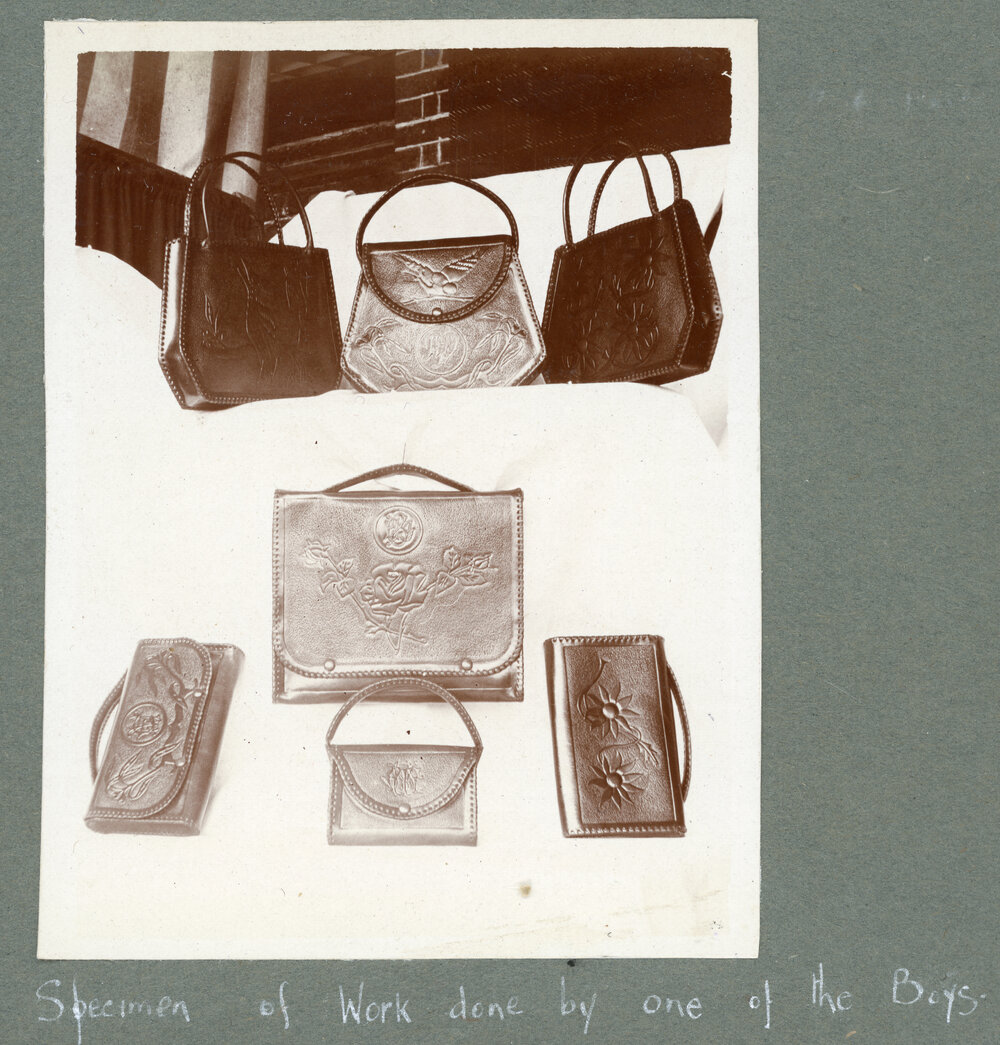 Specimen of Work done by one of the Boys.